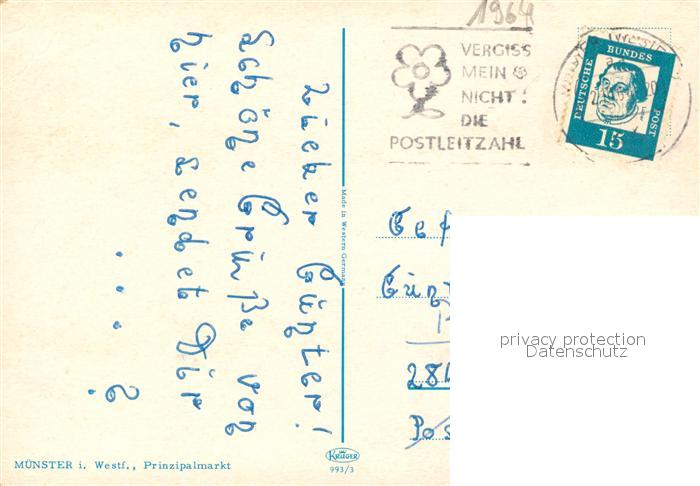 1964
VERGISS
MEIN
NICHT!
DIE
POSTLEITZAHL
DEUTSCHE BUNDES POST
15
Lieber Günter!
Schöne Grüße von
hier, sendet Dir
. . . . ?
Made in Western Germany
privacy protection
Datenschutz
MÜNSTER i. Westf., Prinzipalmarkt
KRÜGER
993/3